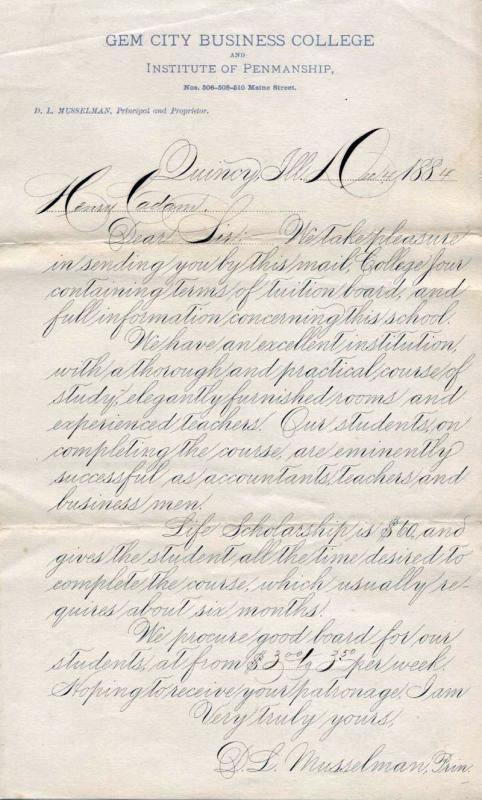 GEM CITY BUSINESS COLLEGE
AND
INSTITUTE OF PENMANSHIP,
Nos. 506-508-510 Maine Street.
D. L. MUSSELMAN, Principal and Proprietor.
Quincy, Ill. Dec 4, 1884
Henry Eadam.
Dear Sir:- We take pleasure
in sending you by this mail, College Jour
containing terms of tuition board, and
full information concerning this school.
We have an excellent institution,
with a thorough and practical course of
study, elegantly furnished rooms and
experienced teachers. Our students, on
completing the course, are eminently
successful as accountants, teachers and
business men.
Life Scholarship is $60, and
gives the student all the time desired to
complete the course, which usually re-
quires about six months.
We procure good board for our
students, at from $3.00 to 3.50 per week.
Hoping to receive your patronage, I am
Very truly yours,
D. L. Musselman, Prin.